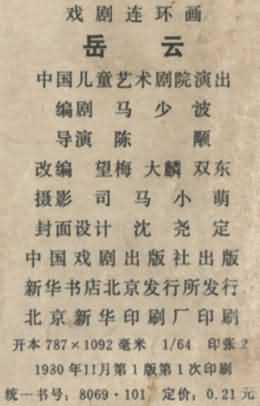 戏剧连环画
岳云
中国儿童艺术剧院演出
编剧 马少波
导演 陈颙
改编 望梅 大麟 双东
摄影 司马小萌
封面设计 沈尧定
中国戏剧出版社出版
新华书店北京发行所发行
北京新华印刷厂印刷
开本787×1092毫米 1/64 印张2
1980年11月第1版第1次印刷
统一书号:8069·101 定价:0.21元